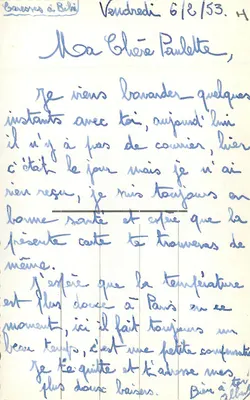 Vendredi 6/2/53.
Ma Chère Paulette,
Je viens bavarder quelques
instants avec toi, aujourd'hui
il n'y a pas de courrier, hier
c'était le jour mais je n'ai
rien reçu, je suis toujours en
bonne santé et espère que la
présente carte te trouvera de
même.
J'espère que la température
est plus douce à Paris en ce
moment, ici il fait toujours un
beau temps, c'est une petite compensation
Je te quitte et t'adresse mes
plus doux baisers.
Bien à toi